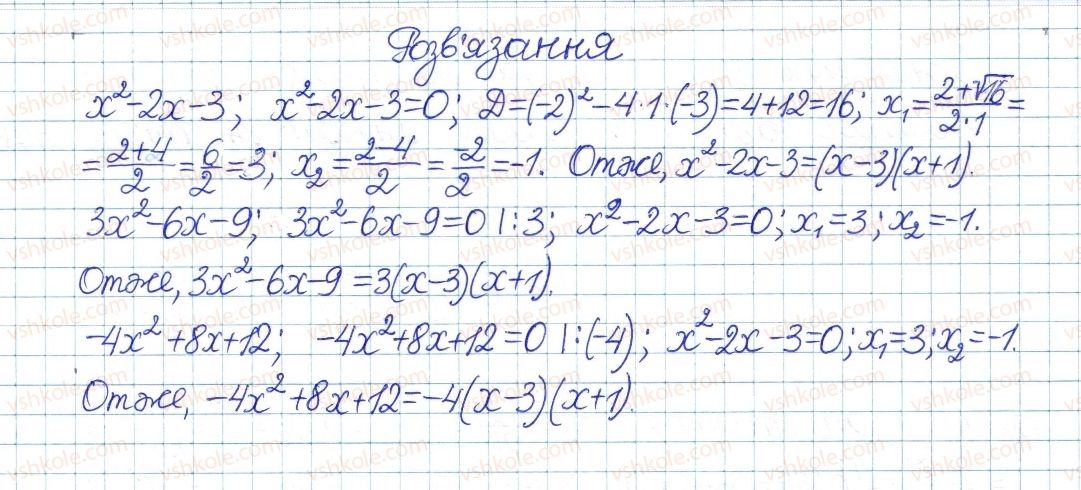 Розв'язання
x²-2x-3; x²-2x-3=0; D=(-2)²-4·1·(-3)=4+12=16; x₁=(2+√16)/(2·1)=
=(2+4)/2=6/2=3; x₂=(2-4)/2=-2/2=-1. Отже, x²-2x-3=(x-3)(x+1).
3x²-6x-9; 3x²-6x-9=0 |:3; x²-2x-3=0; x₁=3; x₂=-1.
Отже, 3x²-6x-9=3(x-3)(x+1).
-4x²+8x+12; -4x²+8x+12=0 |:(-4); x²-2x-3=0; x₁=3; x₂=-1.
Отже, -4x²+8x+12=-4(x-3)(x+1).
vshkole.com